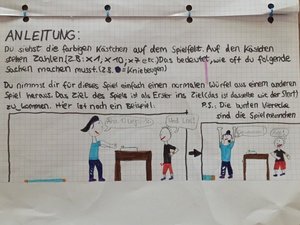 ANLEITUNG:
Du siehst die farbigen Kästchen auf dem Spielfeld. Auf den Kästchen
stehen Zahlen (z.B.: x1, x10, x7 etc.) Das bedeutet, wie oft du folgende
Sachen machen musst. (z.B. = Kniebeugen)
Du nimmst dir für dieses Spiel einfach einen normalen Würfel aus einem anderen
Spiel heraus. Das Ziel des Spiels ist als Erster ins Ziel (das ist dasselbe wie der Start)
zu kommen. Hier ist noch ein Beispiel:
P.S.: Die bunten Vierecke
sind die Spielmännchen